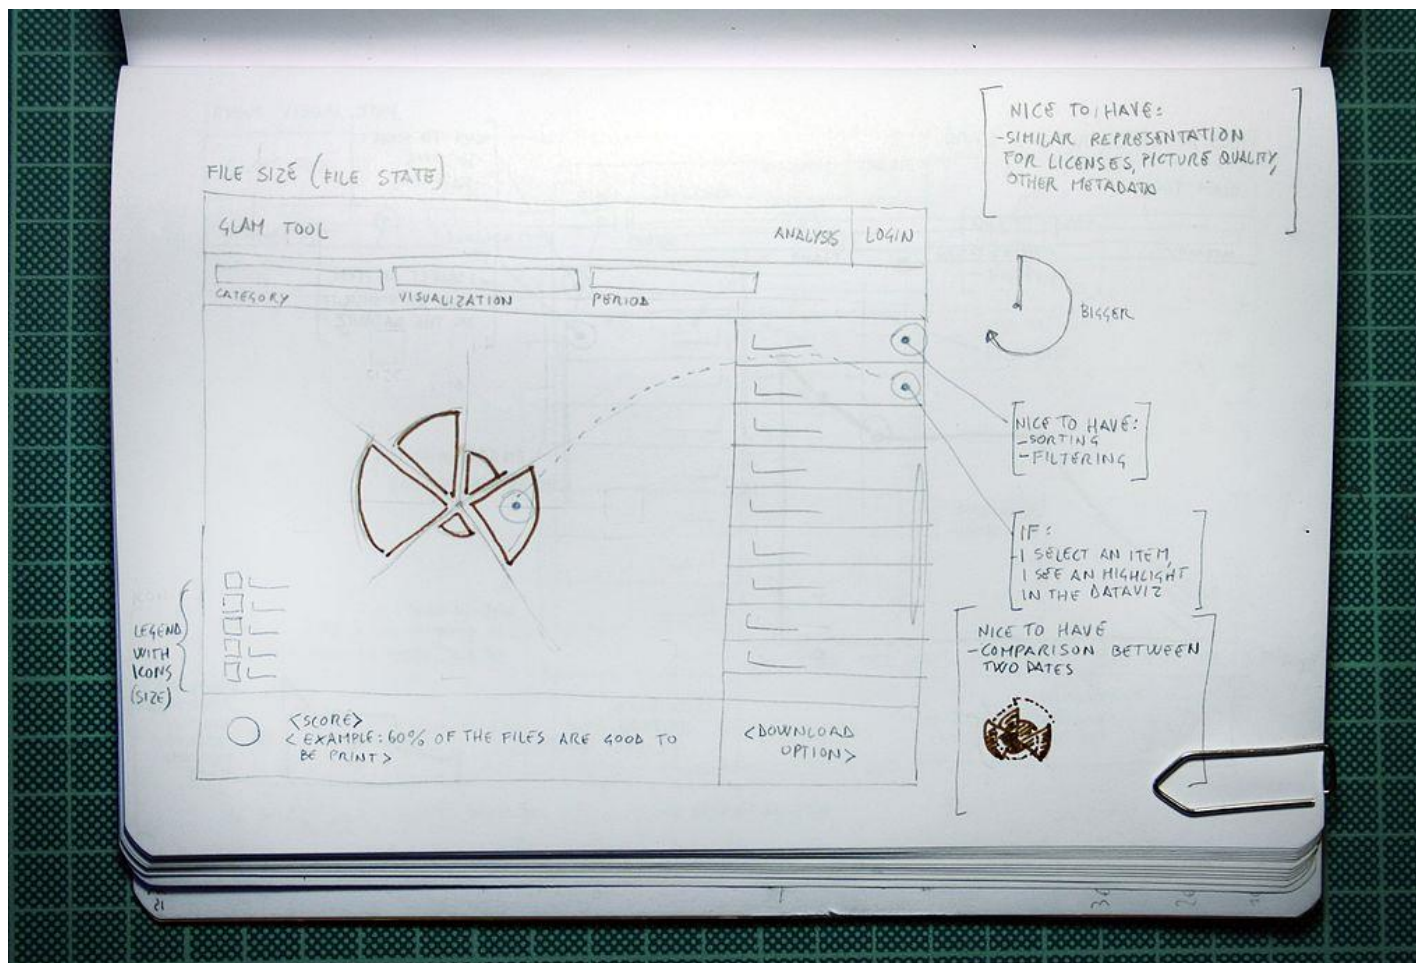 FILE SIZE (FILE STATE)
GLAM TOOL
ANALYSIS
LOGIN
CATEGORY
VISUALIZATION
PERIOD
LEGEND
WITH
ICONS
(SIZE)
<SCORE>
<EXAMPLE: 60% OF THE FILES ARE GOOD TO
BE PRINT>
<DOWNLOAD
OPTION>
NICE TO HAVE:
-SIMILAR REPRESENTATION
FOR LICENSES, PICTURE QUALITY,
OTHER METADATA
BIGGER
NICE TO HAVE:
-SORTING
-FILTERING
IF:
-I SELECT AN ITEM,
I SEE AN HIGHLIGHT
IN THE DATAVIZ
NICE TO HAVE
-COMPARISON BETWEEN
TWO DATES